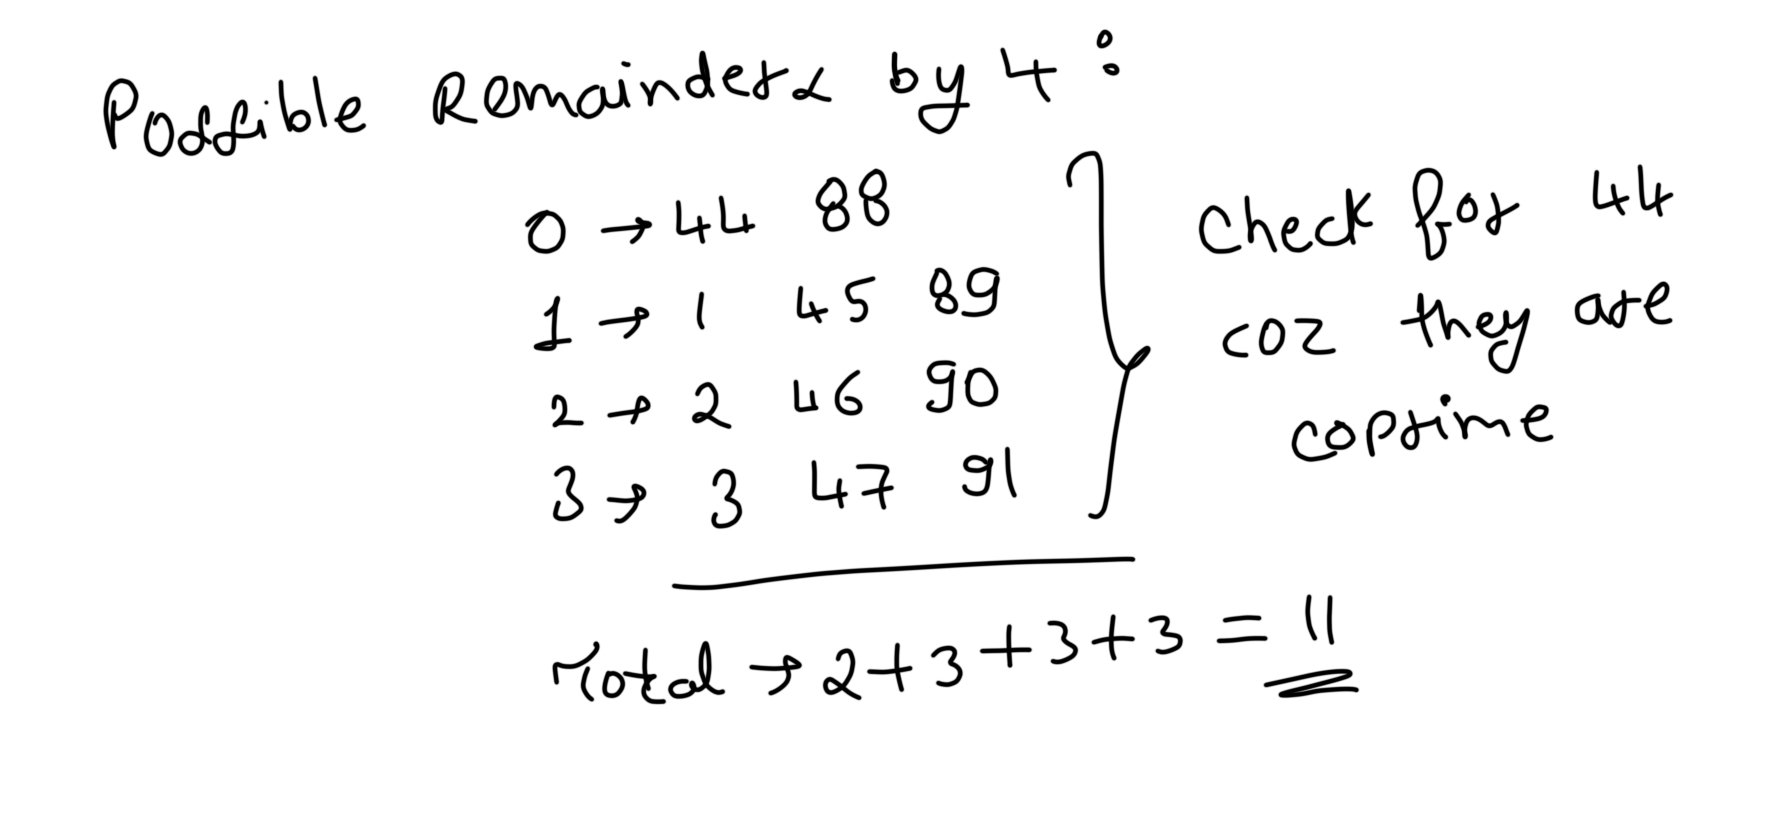 Possible Remainders by 4 :
0 → 44 88
1 → 1 45 89
2 → 2 46 90
3 → 3 47 91
Check for 44
coz they are
coprime
Total → 2+3+3+3 = 11